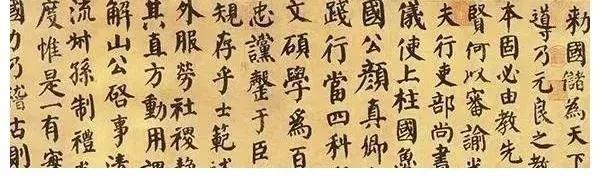 敕國儲為天下
導乃元良之教
本固必由教先
賢何以審諭光
夫行吏部尚書
儀使上柱國魯
國公顏真卿
踐行當四科
文碩學為百
忠讜罄于臣
規存乎士範述
外服勞社稷靜
其直方動用謂
解山公啓事清
流叔孫制禮光
度惟是一有實
國力乃稽古則